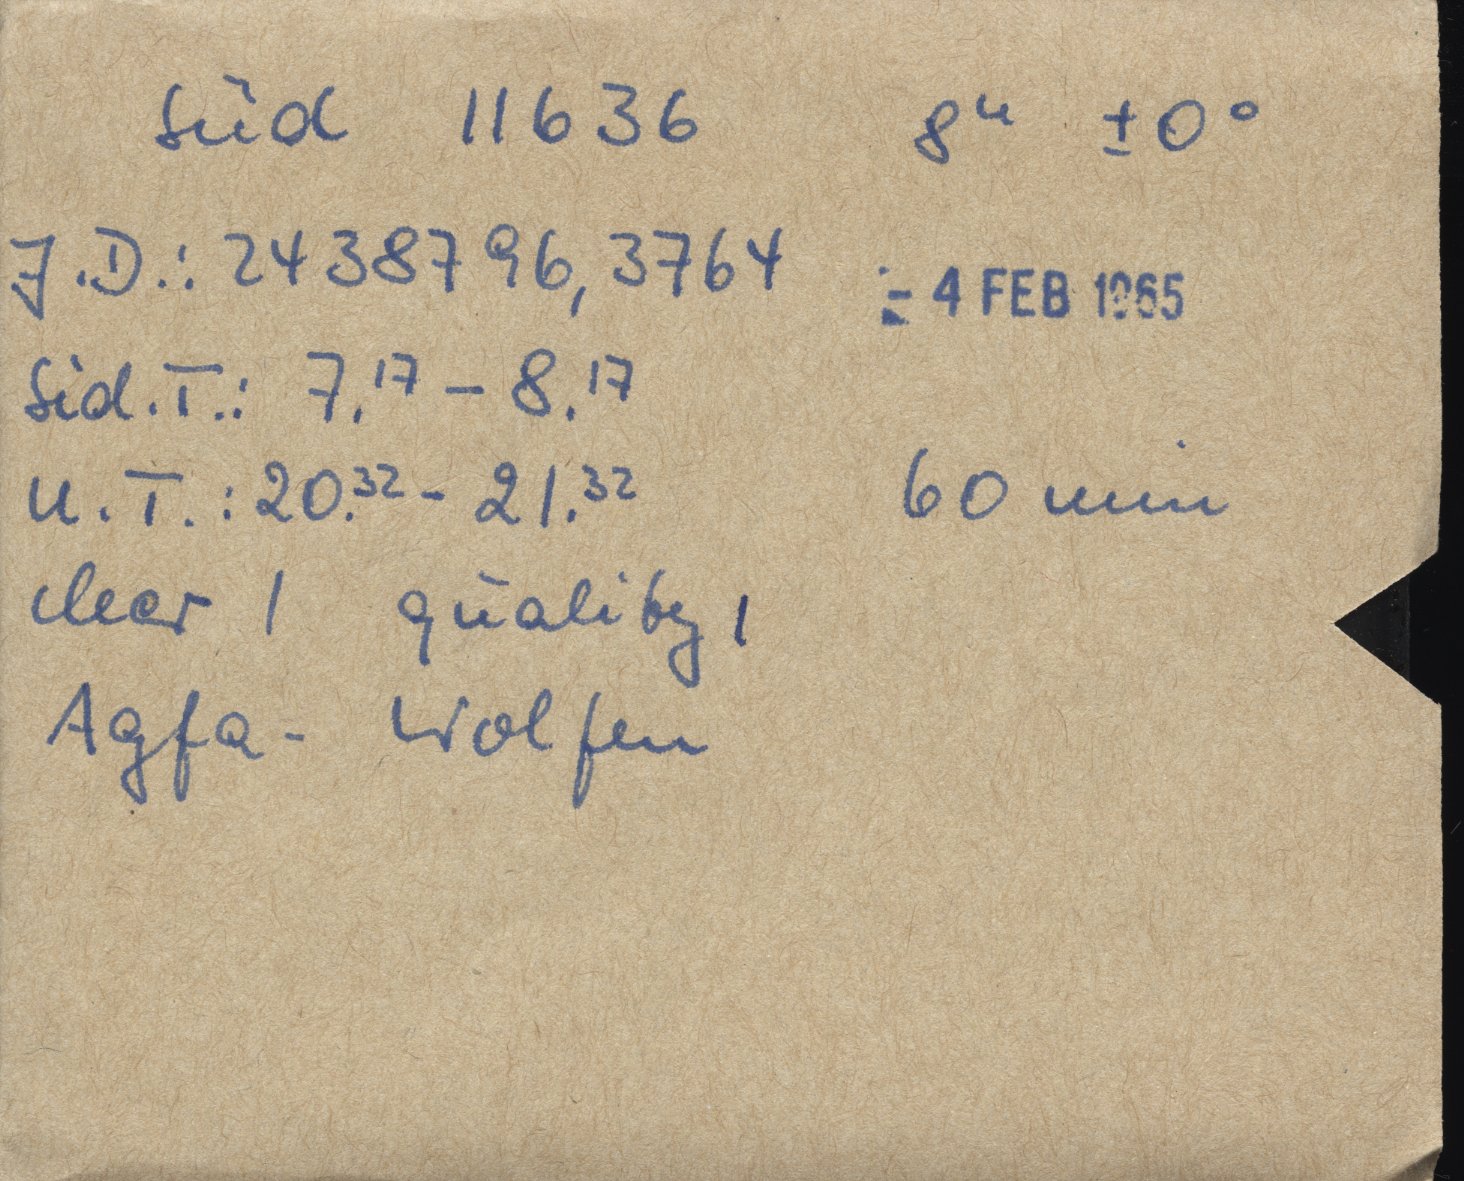 Süd 11636 8ʰ ±0°
J.D.: 2438796,3764 - 4 FEB 1965
Sid.T.: 7.¹⁷ - 8.¹⁷
U.T.: 20.³² - 21.³² 60 min
clear 1 quality 1
Agfa - Wolfen